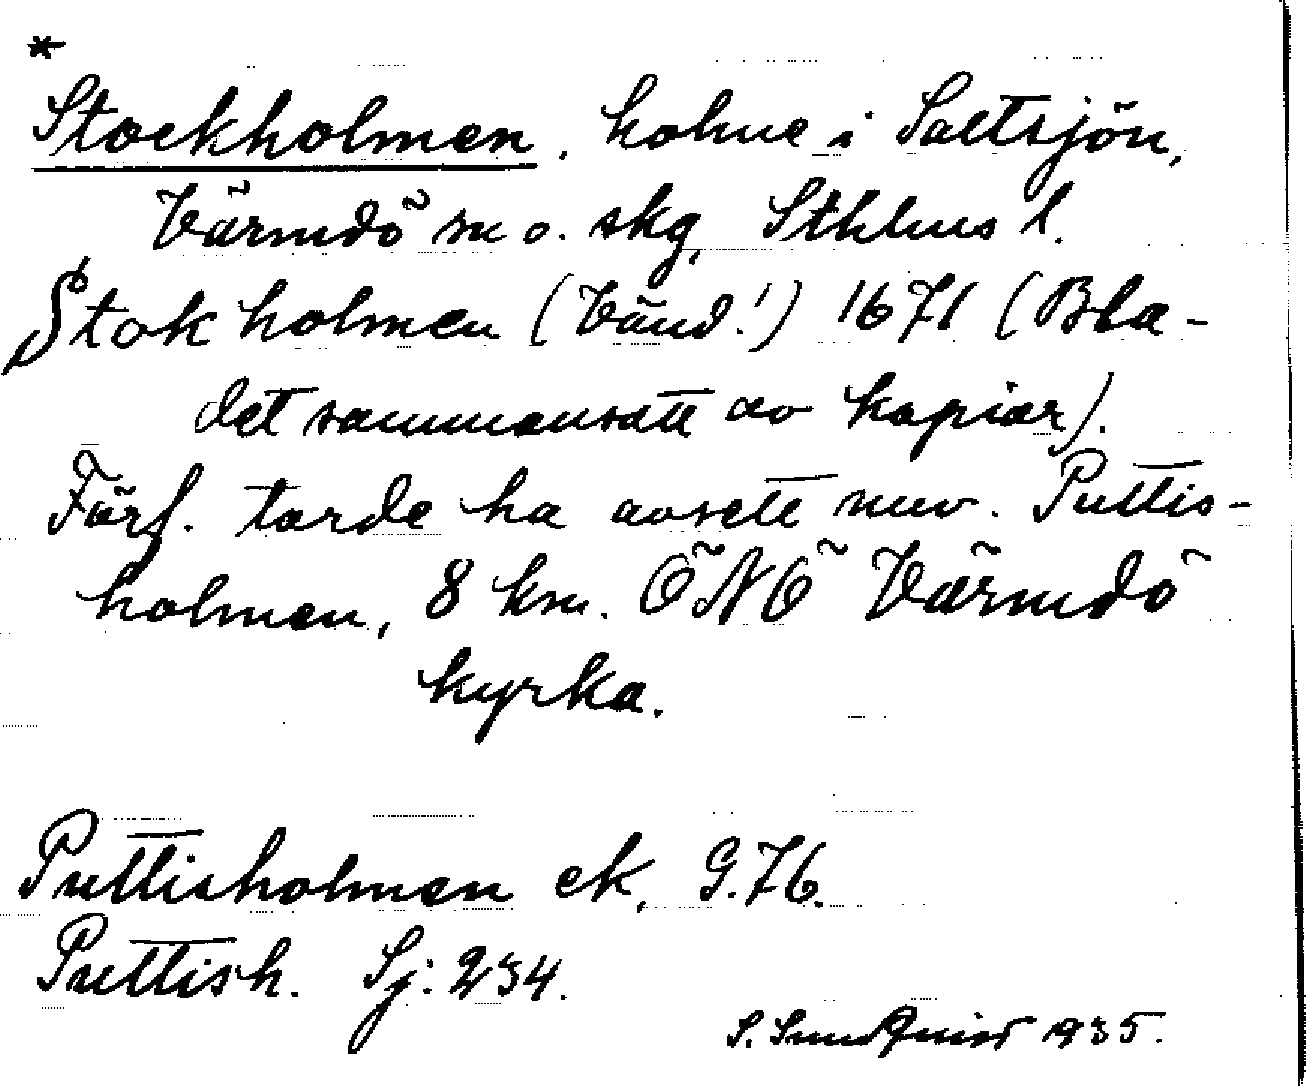 *
Stockholmen, holme i Saltsjön,
Värmdö sn o. skg, Sthlms l.
Stokholmen (Vänd!) 1671 (Bla-
det sammansatt av kopior).
Förf. torde ha avsett nuv. Puttis-
holmen, 8 km. ÖNÖ Värmdö
kyrka.
Puttisholmen ek, G.76.
Puttish. Sj: 234.
S. Sundquist 1935.